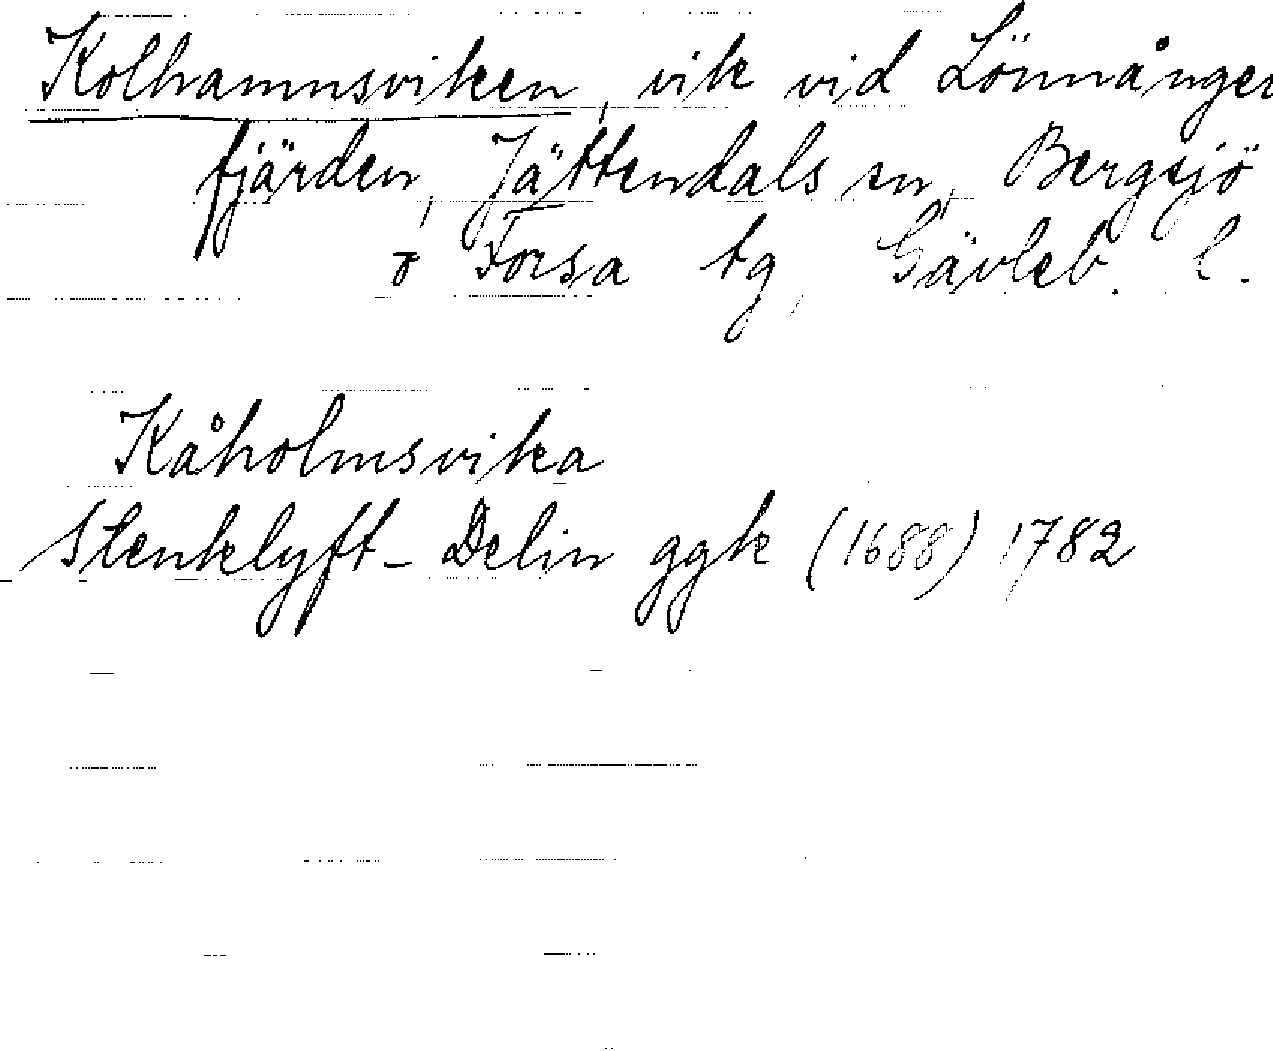 Kolhamnsviken, vik vid Lönnånger
fjärden, Jättendals sn, Bergsjö
o Forsa tg, Gävleb. l.
Kåholmsvika
Stenklyft-Delin ggk (1688) 1782